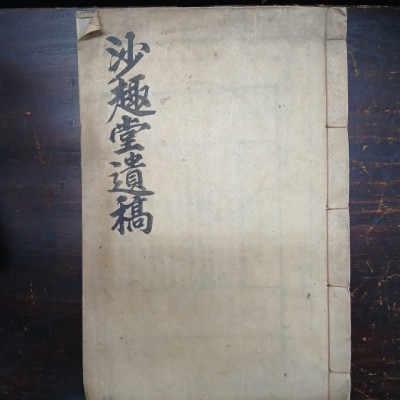 沙趣堂遺稿